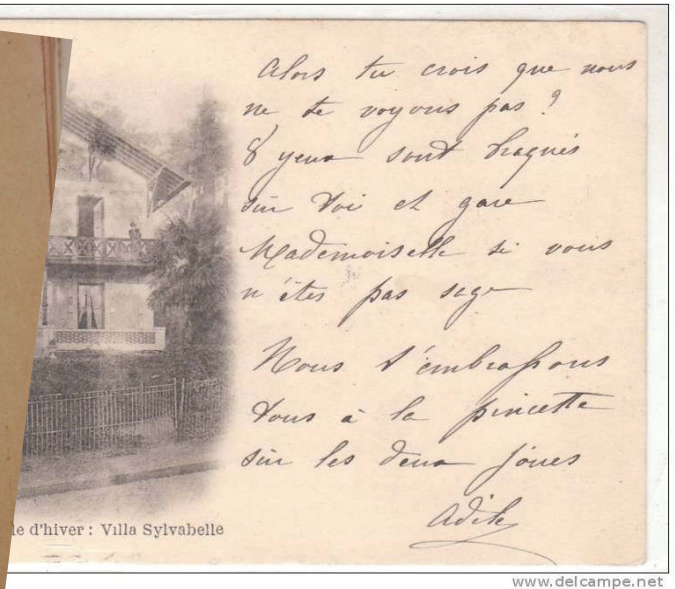 Alors tu crois que nous
ne te voyons pas ?
8 yeux sont braqués
sur toi et gare
Mademoiselle si vous
n'êtes pas sage
Nous t'embrassons
tous à la pincette
sur les deux joues
le d'hiver : Villa Sylvabelle
www.delcampe.net